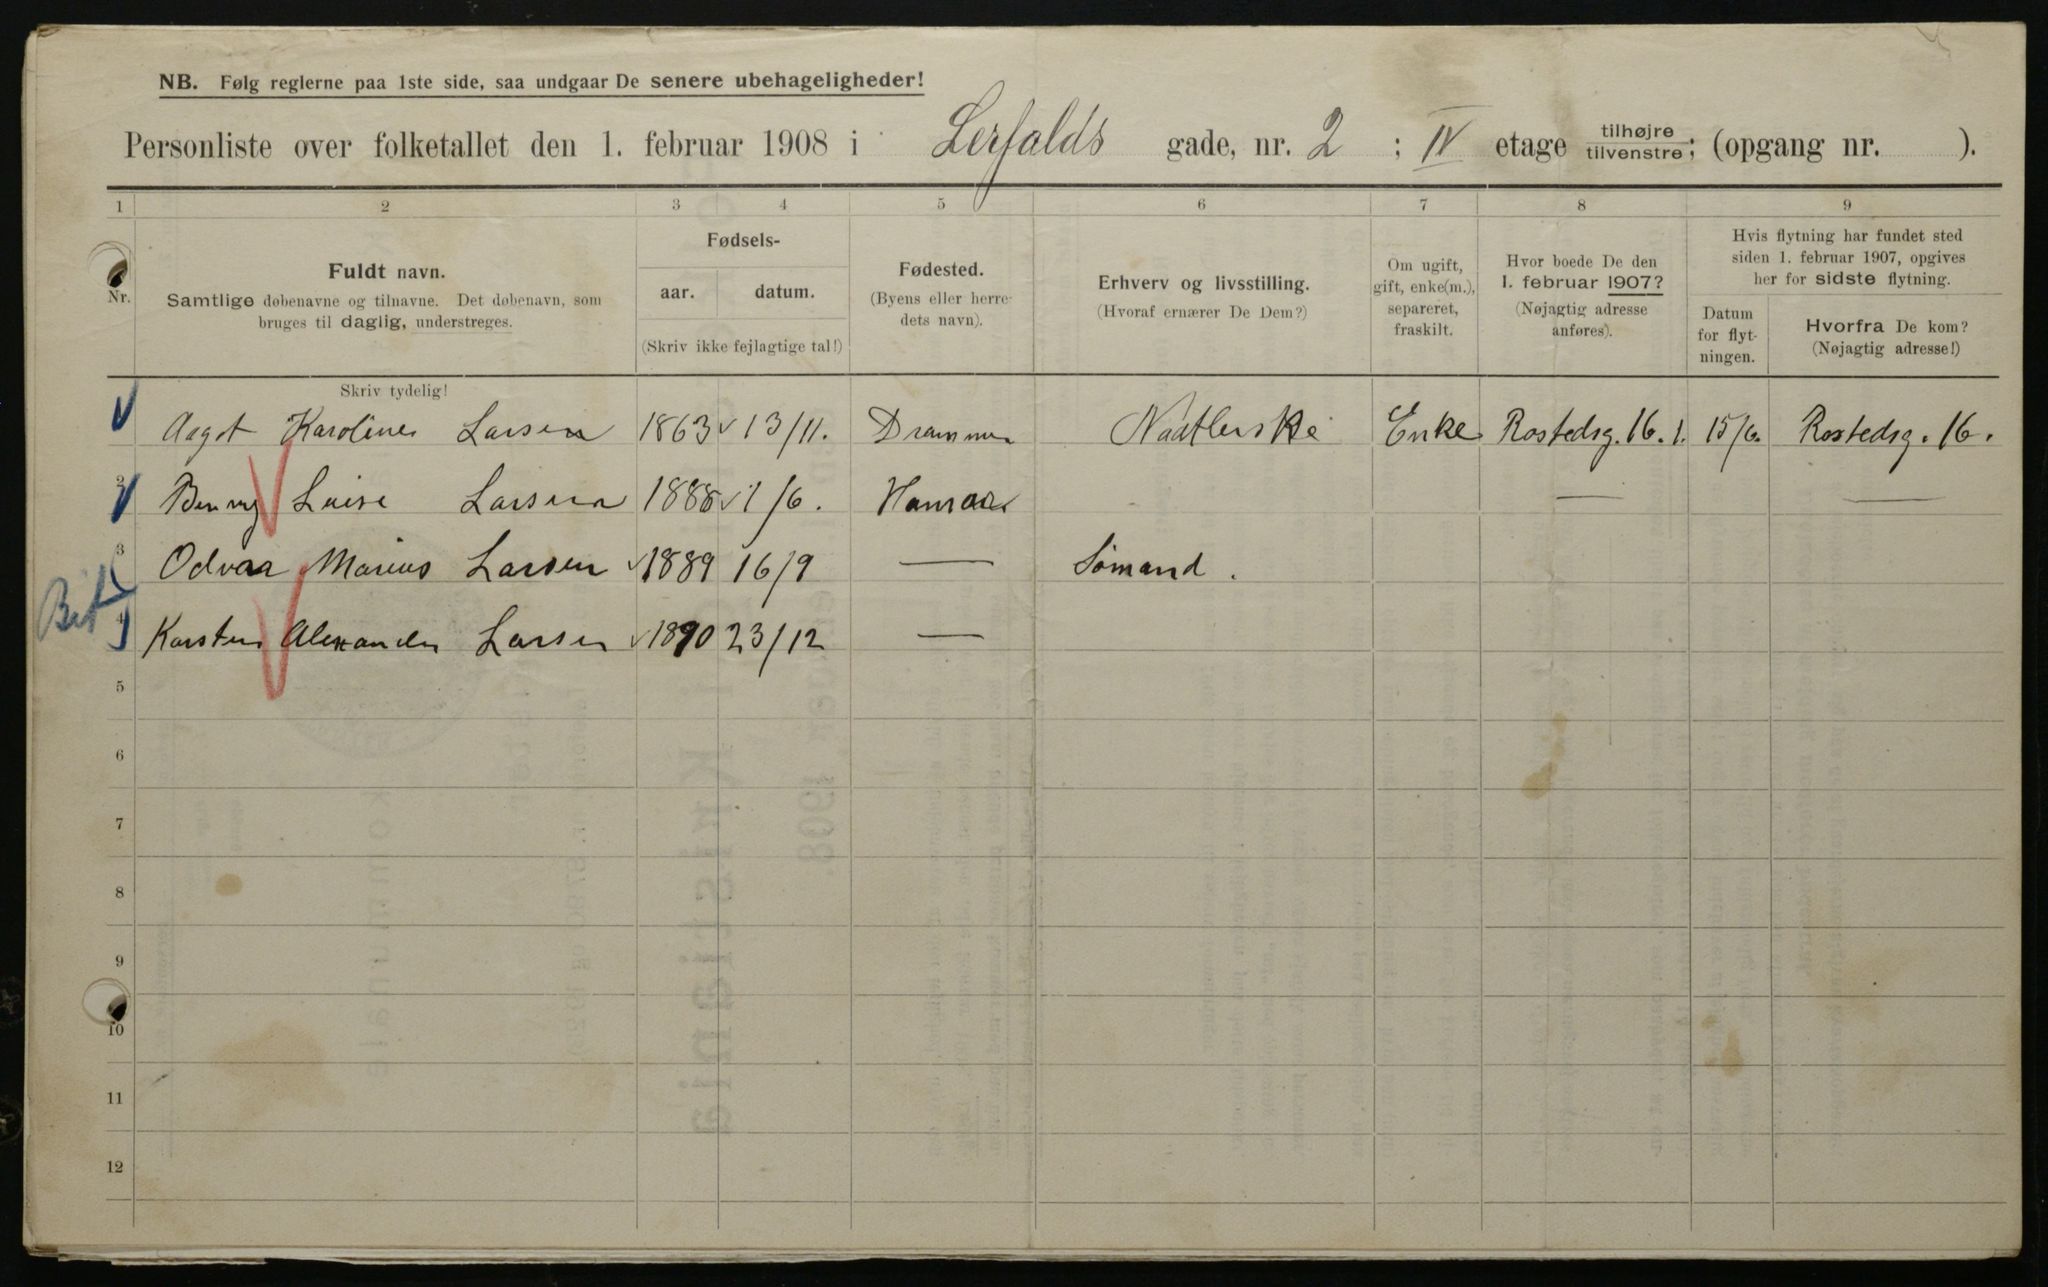 NB. Følg reglerne paa 1ste side, saa undgaar De senere ubehageligheder!
Personliste over folketallet den 1. februar 1908 i Lerfalds gade, nr. 2 ; IV etage tilhøjre/tilvenstre; (opgang nr. ).
1 2 3 4 5 6 7 8 9
Nr.
Fuldt navn.
Samtlige døbenavne og tilnavne. Det døbenavn, som
bruges til daglig, understreges.
Skriv tydelig!
Fødsels-
aar. datum.
(Skriv ikke fejlagtige tal!)
Fødested.
(Byens eller herre-
dets navn).
Erhverv og livsstilling.
(Hvoraf ernærer De Dem?)
Om ugift,
gift, enke(m.),
separeret,
fraskilt.
Hvor boede De den
1. februar 1907?
(Nøjagtig adresse
anføres).
Hvis flytning har fundet sted
siden 1. februar 1907, opgives
her for sidste flytning.
Datum
for flyt-
ningen.
Hvorfra De kom?
(Nøjagtig adresse!)
Aagot Karoline Larsen 1863 13/11. Drammen Enke Rostedsg. 16. 1. 15/6. Rostedsg. 16.
2 Luise Larsen 1888 1/6. — —
3 Odvar Marius Larsen 1889 16/9 — Sömand.
4 Karsten Alexander Larsen 1890 23/12 —
5
6
7
8
9
10
11
12